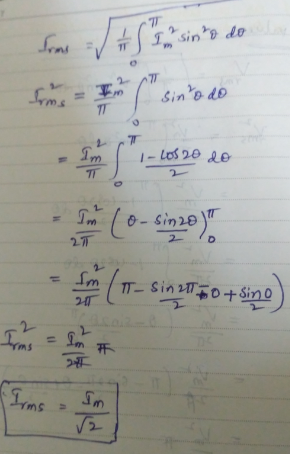 I_rms = √(1/π ∫₀^π I_m² sin²θ dθ)
I²_rms = I_m²/π ∫₀^π sin²θ dθ
= I_m²/π ∫₀^π (1-cos2θ)/2 dθ
= I_m²/2π (θ - sin2θ/2)₀^π
= I_m²/2π (π - sin2π/2 - 0 + sin0/2)
I²_rms = I_m²/2π π
I_rms = I_m/√2